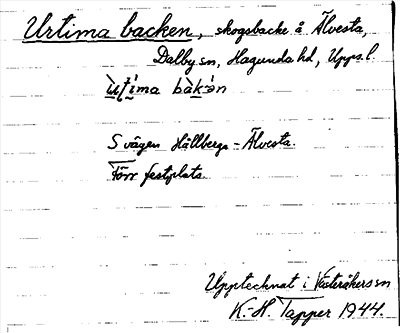 Urtima backen, skogsbacke å Älvesta,
Dalby sn, Hagunda hd, Upps. l.
ùʈi̇́ma bàk·ən
S vägen Hällberga - Älvesta.
Förr festplats.
Upptecknat i Västeråkers sn
K.-H. Tapper 1944.